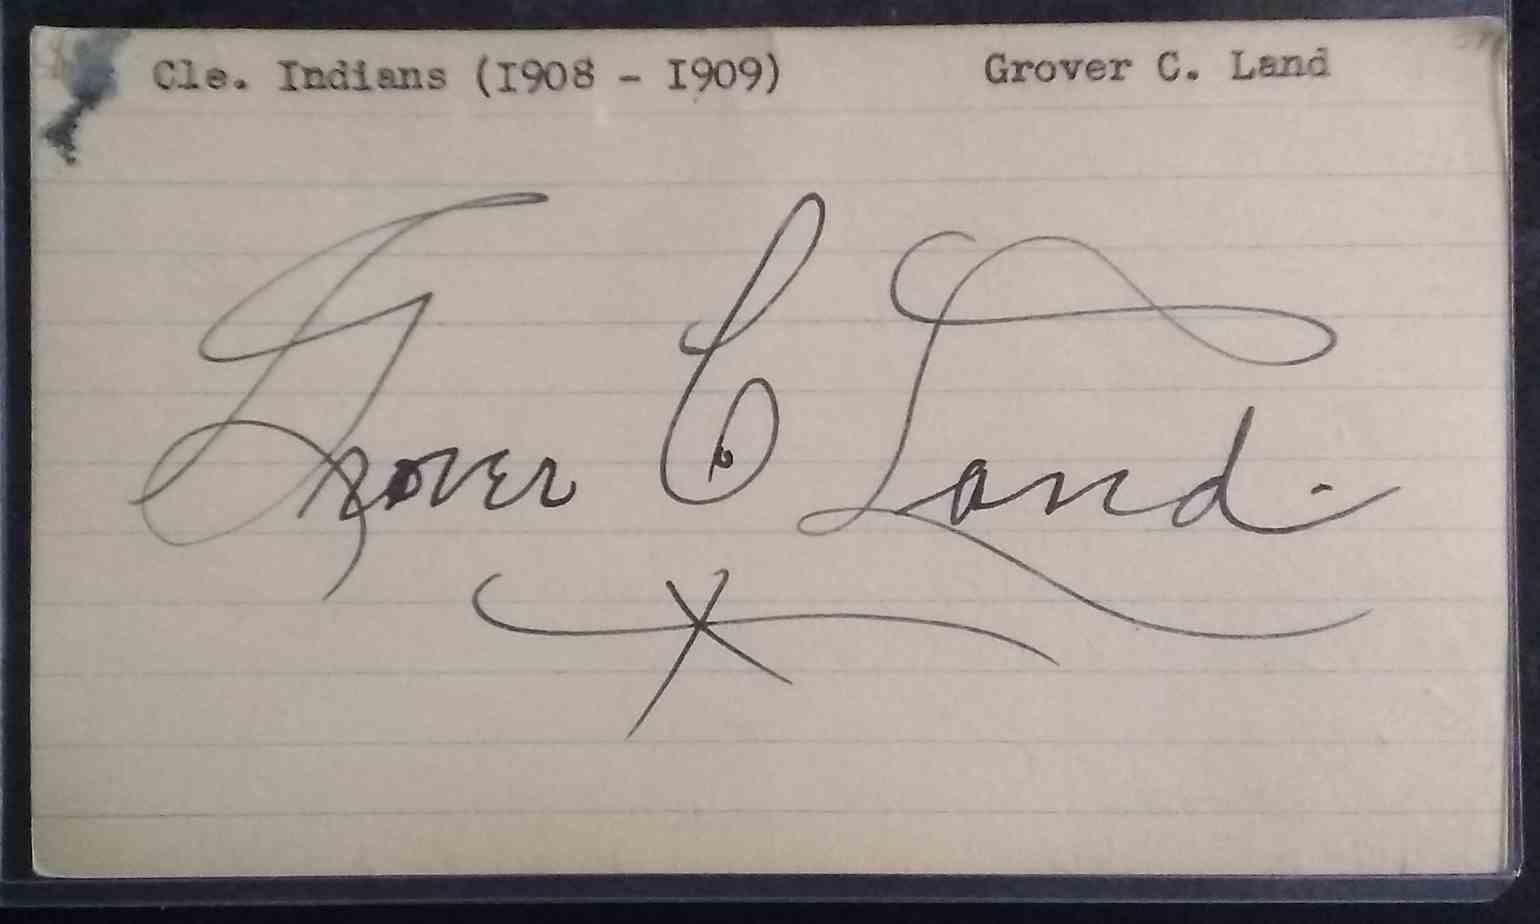 Cle. Indians (I908 - I909) Grover C. Land
Grover C Land.